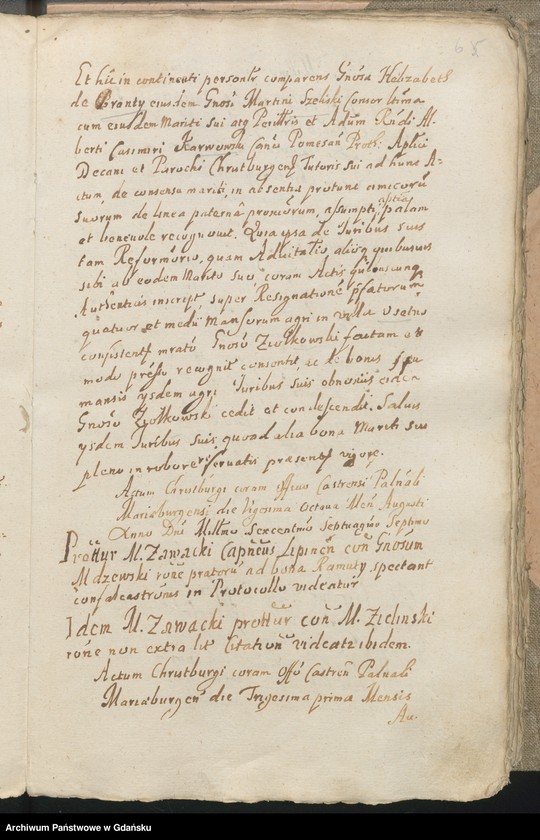 65
Et hic in continenti personlr comparens Gnosa Helizabeth
de Branty eiusdem Gnosi Martini Szeliski Consor ltima
cum eiusdem Mariti sui atq et Adum Rndi Al
berti Casimiri Karwowski Pomesan Proth: Aplici
Decani et Parochi Christburgen Tutoris sui ad hunc A-
ctum, de consensu mariti, in absentia protunc amicoru
suorum de linea paterna proniorum, assumpti, palam
et benevole recognovit. Quia ipsa de Iuribus suis
tam Reformorio, quam Advitalio aliisq quibusuis
sibi ab eodem Marito suo coram Actis quibuscunq
Authenticis inscript, super Resignatione psatorum
quatuor et medii Mansorum agri in Villa
consistent mrato Gnoso Ziolkowski factam et
modo recognit consentit, ac de bonis seu
mansis ysdem agri Iuribus suis obnoxiis eidem
Gnoso Ziolkowski cedit et condescendit. Salvis
ysdem Iuribus suis quoad alia bona Mariti sui
pleno in robore servatis praesent vigore.
Actum Christburgi coram Officio Castrensi Palnali
Mariaeburgensi die Vigesima Octava Men Augusti
Anno Dni Millmo Sexcentmo Septuagmo Septimo
Prottur M. Zawacki Capneus Lipinen con Gnosum
Mdzewski rone pratoru ad bona Ramuty spectant
in Protocollo videatur
Idem M. Zawacki prottur con M. Zielinski
rone non extra lit Citation videatr ibidem.
Actum Christburgi coram Offo Castren Palnali
Mariaeburgen die Trigesima prima Mensis
Au.
Archiwum Państwowe w Gdańsku